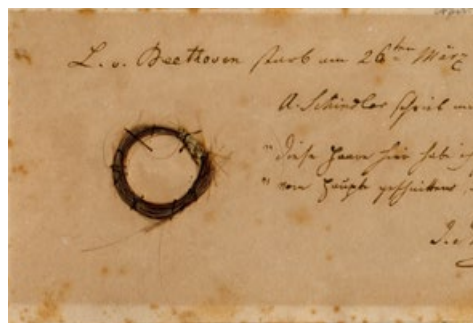 L. v. Beethoven starb am 26ten März
A. Schindler schrieb
"diese Haare hier habe
" vom Haupte geschnitten